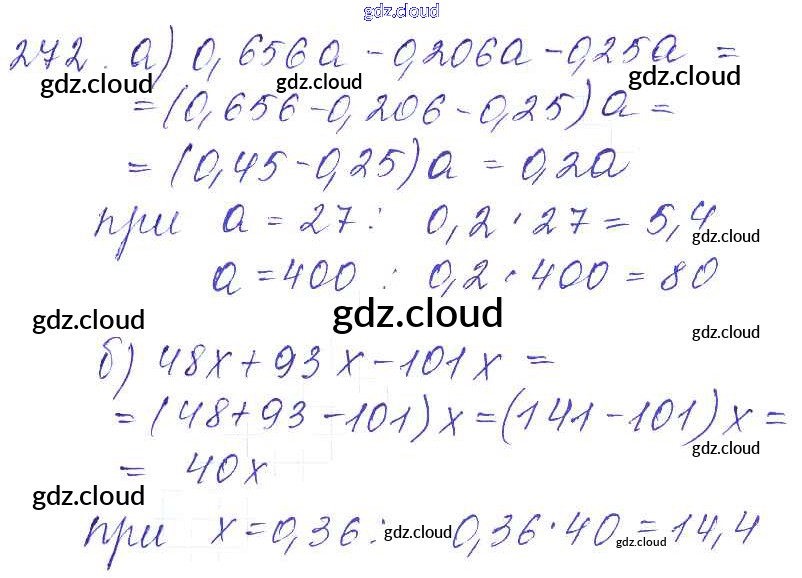 gdz.cloud
272. а) 0,656а - 0,206а - 0,25а =
gdz.cloud gdz.cloud gdz.cloud
= (0,656 - 0,206 - 0,25) а =
= (0,45 - 0,25) а = 0,2а
при а = 27: 0,2 · 27 = 5,4
gdz.cloud
а = 400 : 0,2 · 400 = 80
gdz.cloud gdz.cloud gdz.cloud
б) 48х + 93х - 101х =
= (48 + 93 - 101) х = (141 - 101) х =
gdz.cloud
= 40х
gdz.cloud
при х = 0,36: 0,36 · 40 = 14,4
gdz.cloud gdz.cloud